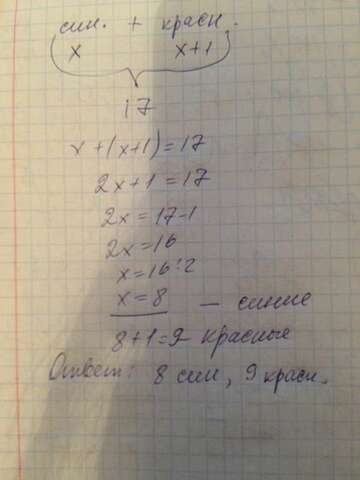 син. + красн.
x x+1
17
x+(x+1)=17
2x+1=17
2x=17-1
2x=16
x=16:2
x=8 — синие
8+1=9 - красные
Ответ: 8 син, 9 красн.